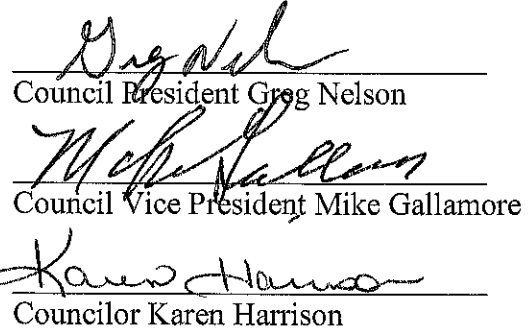 Greg Nelson
Council President Greg Nelson
Mike Gallamore
Council Vice President Mike Gallamore
Karen Harrison
Councilor Karen Harrison